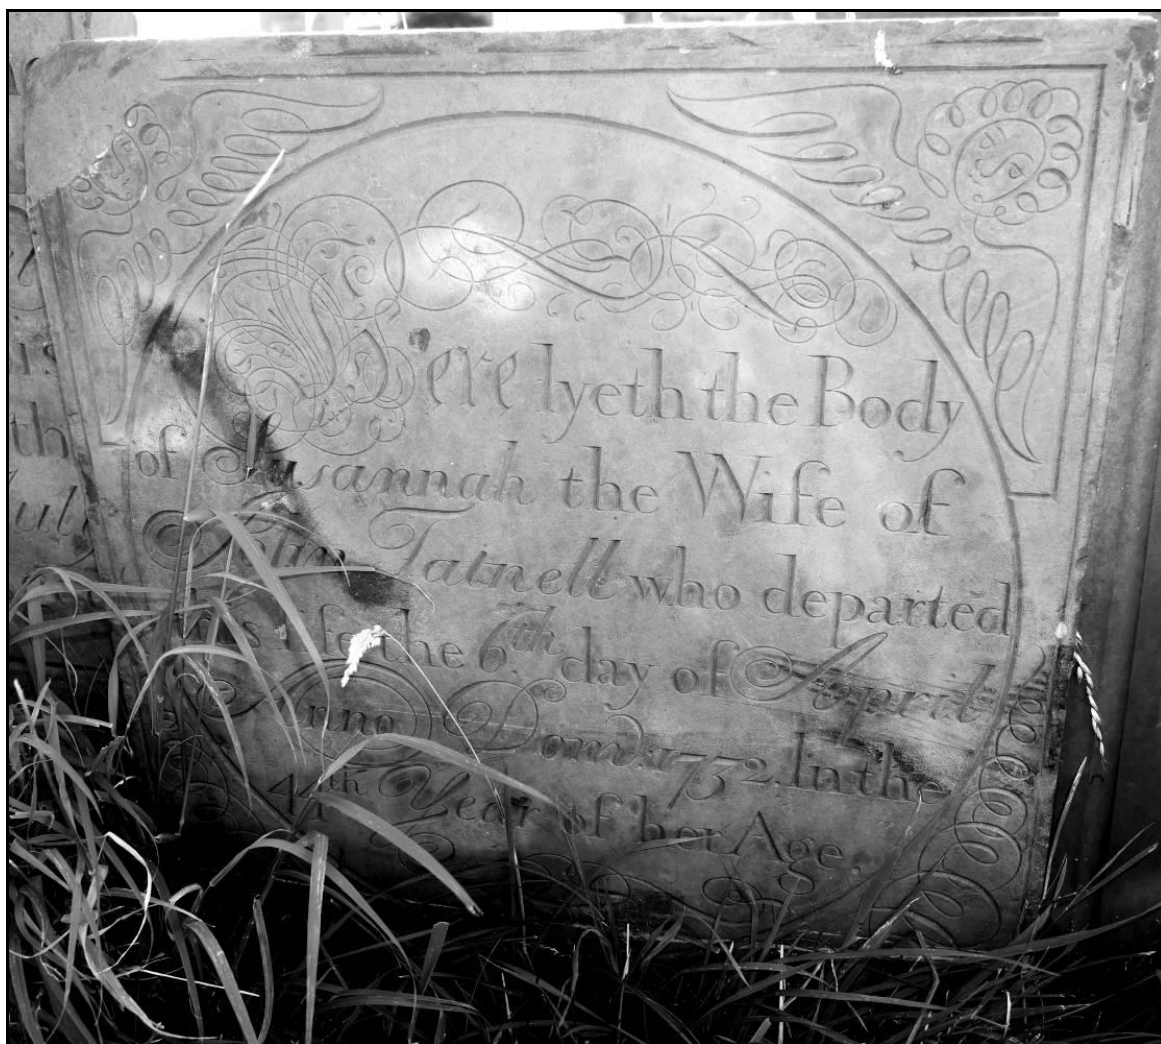 Here lyeth the Body
of Susannah the Wife of
John Tatnell who departed
this life the 6th day of April
Anno Dom: 1732. In the
44th Year of her Age.
th
July